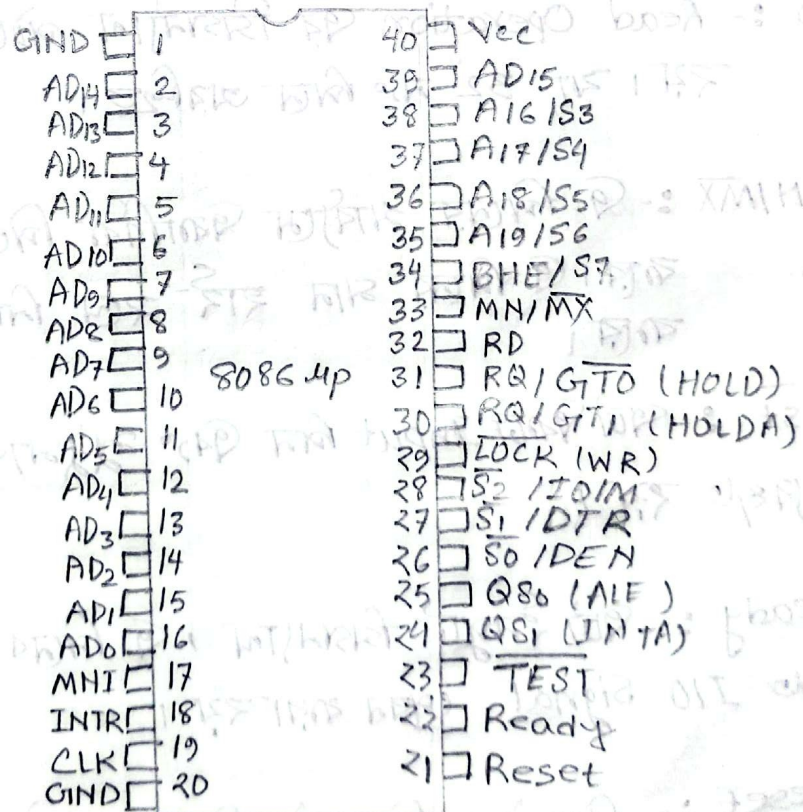 GND 1
AD14 2
AD13 3
AD12 4
AD11 5
AD10 6
AD9 7
AD8 8
AD7 9
AD6 10
AD5 11
AD4 12
AD3 13
AD2 14
AD1 15
AD0 16
MNI 17
INTR 18
CLK 19
GND 20
8086 μp
40 Vcc
39 AD15
38 A16/S3
37 A17/S4
36 A18/S5
35 A19/S6
34 BHE/S7
33 MN/M̅X̅
32 RD
31 RQ/G̅T̅O̅ (HOLD)
30 R̅Q̅/G̅T̅1 (HOLDA)
29 L̅O̅C̅K̅ (WR)
28 S̅2̅/IO/M
27 S̅1̅/DTR
26 S̅0̅/DEN
25 QS0 (ALE)
24 QS1 (INTA)
23 T̅E̅S̅T̅
22 Ready
21 Reset